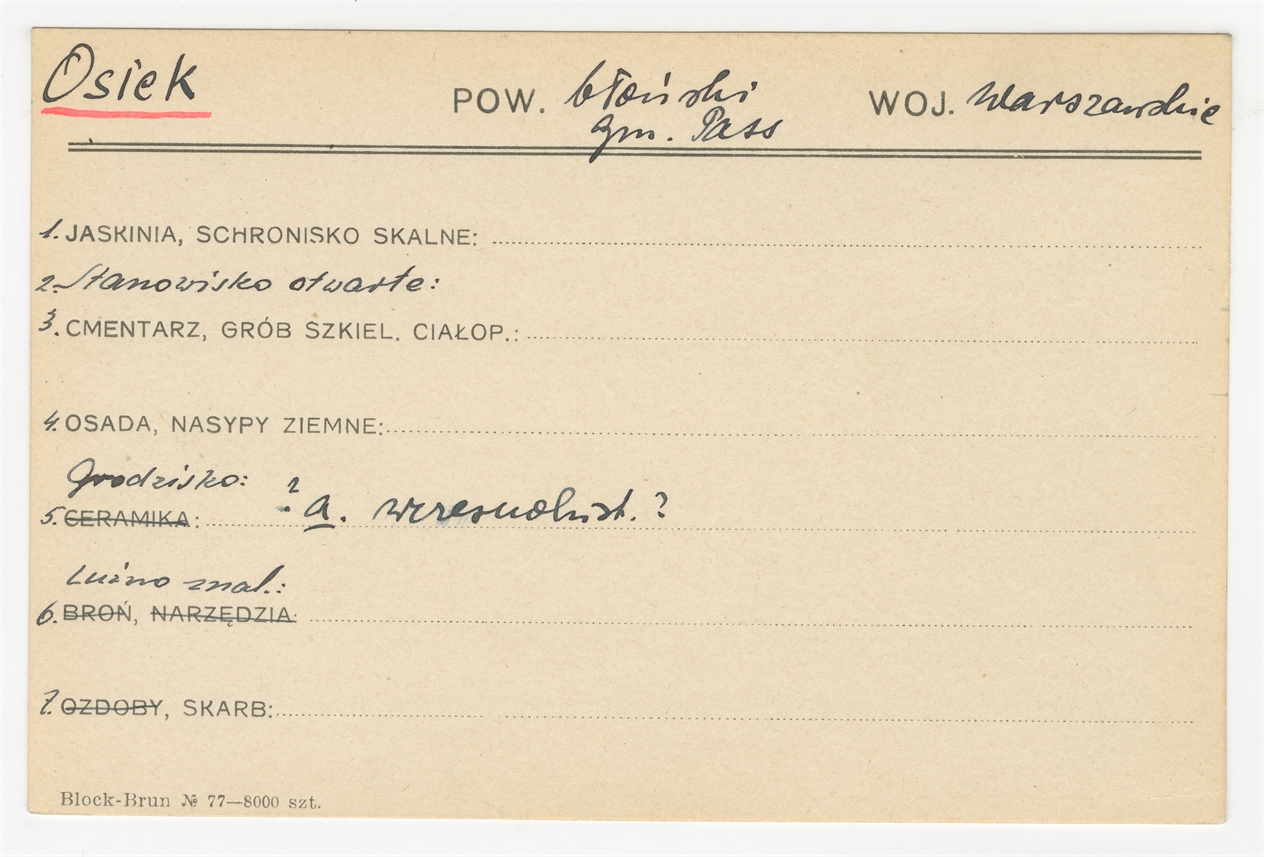 Osiek POW. błoński WOJ. Warszawskie
gm. Pass
1. JASKINIA, SCHRONISKO SKALNE:
2. Stanowisko otwarte:
3. CMENTARZ, GRÓB SZKIEL. CIAŁOP.:
4. OSADA, NASYPY ZIEMNE:
Grodzisko:
5. CERAMIKA: ? a. wczesnohist.?
Luźno znal.:
6. BROŃ, NARZĘDZIA:
7. OZDOBY, SKARB:
Block-Brun № 77—8000 szt.